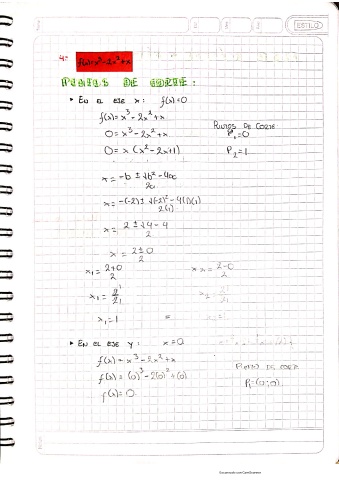 ESTILO
4= f(x)=x³-2x²+x
PUNTOS DE CORTE:
▸ EN EL EJE x: f(x)=0
f(x)= x³-2x²+x
0= x³-2x²+x
0= x(x²-2x+1)
PUNTOS DE CORTE
P₁=0
P₂=1
x= -b ± √b²-4ac / 2a
x= -(-2) ± √(-2)²-4(1)(1) / 2(1)
x= 2 ± √4-4 / 2
x= 2±0 / 2
x₁= 2+0 / 2 x₂= 2-0 / 2
x₁= 2 / 2
x₁=1 = x₂=1
▸ EN EL EJE y: x=0
f(x)= x³-2x²+x
f(x)= (0)³-2(0)²+(0)
f(x)= 0
PUNTO DE CORTE
P₁=(0;0)
Escaneado con CamScanner